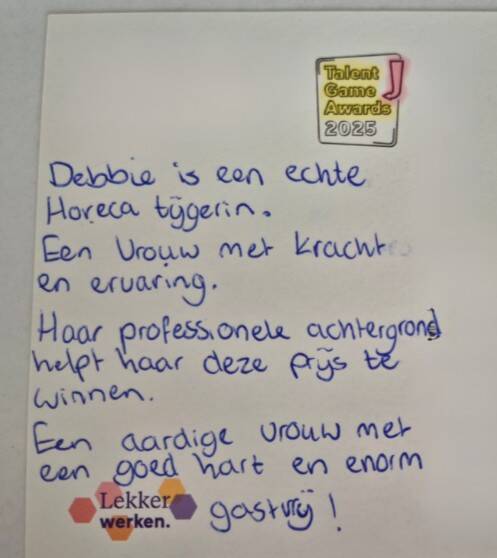 Talent
Game
Awards
2025
J
Debbie is een echte
Horeca tijgerin.
Een Vrouw met kracht
en ervaring.
Haar professionele achtergrond
helpt haar deze prijs te
winnen.
Een aardige vrouw met
een goed hart en enorm
gastvrij!
Lekker
werken.